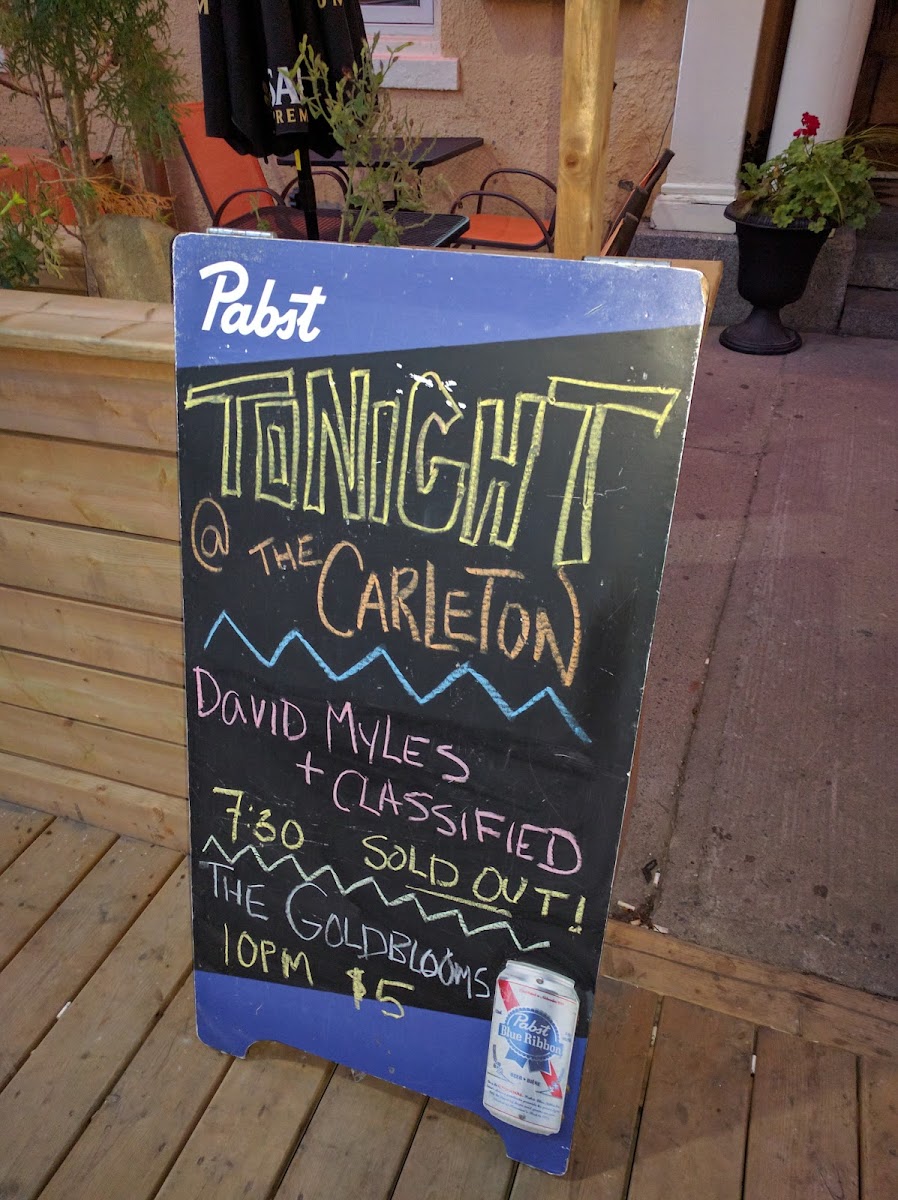 Pabst
TONIGHT
@ THE CARLETON
DAVID MYLES
+ CLASSIFIED
7:30 SOLD OUT!
THE GOLDBLOOMS
10PM $5
Pabst
Blue Ribbon